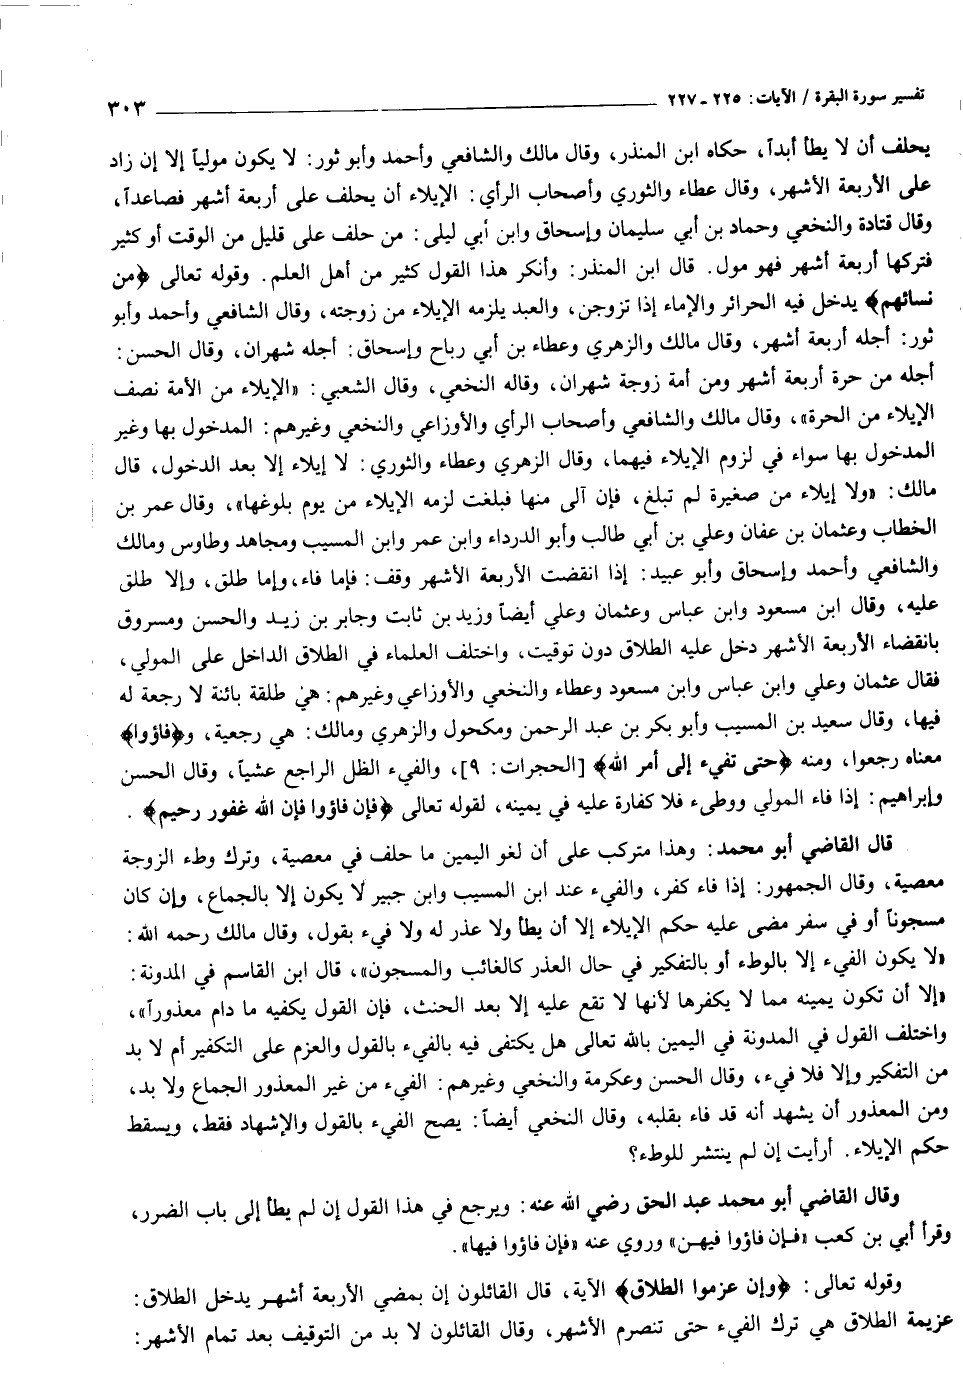 تفسير سورة البقرة / الآيات: ٢٢٥ - ٢٢٧
٣٠٣
يحلف أن لا يطأ أبداً، حكاه ابن المنذر، وقال مالك والشافعي وأحمد وأبو ثور: لا يكون مولياً إلا إن زاد
على الأربعة الأشهر، وقال عطاء والثوري وأصحاب الرأي: الإيلاء أن يحلف على أربعة أشهر فصاعداً،
وقال قتادة والنخعي وحماد بن أبي سليمان وإسحاق وابن أبي ليلى: من حلف على قليل من الوقت أو كثير
فتركها أربعة أشهر فهو مول. قال ابن المنذر: وأنكر هذا القول كثير من أهل العلم. وقوله تعالى ﴿من
نسائهم﴾ يدخل فيه الحرائر والإماء إذا تزوجن، والعبد يلزمه الإيلاء من زوجته، وقال الشافعي وأحمد وأبو
ثور: أجله أربعة أشهر، وقال مالك والزهري وعطاء بن أبي رباح وإسحاق: أجله شهران، وقال الحسن:
أجله من حرة أربعة أشهر ومن أمة زوجة شهران، وقاله النخعي، وقال الشعبي: «الإيلاء من الأمة نصف
الإيلاء من الحرة»، وقال مالك والشافعي وأصحاب الرأي والأوزاعي والنخعي وغيرهم: المدخول بها وغير
المدخول بها سواء في لزوم الإيلاء فيهما، وقال الزهري وعطاء والثوري: لا إيلاء إلا بعد الدخول، قال
مالك: «ولا إيلاء من صغيرة لم تبلغ، فإن آلى منها فبلغت لزمه الإيلاء من يوم بلوغها»، وقال عمر بن
الخطاب وعثمان بن عفان وعلي بن أبي طالب وأبو الدرداء وابن عمر وابن المسيب ومجاهد وطاوس ومالك
والشافعي وأحمد وإسحاق وأبو عبيد: إذا انقضت الأربعة الأشهر وقف: فإما فاء، وإما طلق، وإلا طلق
عليه، وقال ابن مسعود وابن عباس وعثمان وعلي أيضاً وزيد بن ثابت وجابر بن زيد والحسن ومسروق
بانقضاء الأربعة الأشهر دخل عليه الطلاق دون توقيت، واختلف العلماء في الطلاق الداخل على المولي،
فقال عثمان وعلي وابن عباس وابن مسعود وعطاء والنخعي والأوزاعي وغيرهم: هي طلقة بائنة لا رجعة له
فيها، وقال سعيد بن المسيب وأبو بكر بن عبد الرحمن ومكحول والزهري ومالك: هي رجعية، و﴿فاؤوا﴾
معناه رجعوا، ومنه ﴿حتى تفيء إلى أمر الله﴾ [الحجرات: ٩]، والفيء الظل الراجع عشياً، وقال الحسن
وإبراهيم: إذا فاء المولي ووطىء فلا كفارة عليه في يمينه، لقوله تعالى ﴿فإن فاؤوا فإن الله غفور رحيم﴾.
قال القاضي أبو محمد: وهذا متركب على أن لغو اليمين ما حلف في معصية، وترك وطء الزوجة
معصية، وقال الجمهور: إذا فاء كفر، والفيء عند ابن المسيب وابن جبير لا يكون إلا بالجماع، وإن كان
مسجوناً أو في سفر مضى عليه حكم الإيلاء إلا أن يطأ ولا عذر له ولا فيء بقول، وقال مالك رحمه الله:
«لا يكون الفيء إلا بالوطء أو بالتفكير في حال العذر كالغائب والمسجون»، قال ابن القاسم في المدونة:
«إلا أن تكون يمينه مما لا يكفرها لأنها لا تقع عليه إلا بعد الحنث، فإن القول يكفيه ما دام معذوراً»،
واختلف القول في المدونة في اليمين بالله تعالى هل يكتفى فيه بالفيء بالقول والعزم على التكفير أم لا بد
من التفكير وإلا فلا فيء، وقال الحسن وعكرمة والنخعي وغيرهم: الفيء من غير المعذور الجماع ولا بد،
ومن المعذور أن يشهد أنه قد فاء بقلبه، وقال النخعي أيضاً: يصح الفيء بالقول والإشهاد فقط، ويسقط
حكم الإيلاء. أرأيت إن لم ينتشر للوطء؟
وقال القاضي أبو محمد عبد الحق رضي الله عنه: ويرجع في هذا القول إن لم يطأ إلى باب الضرر،
وقرأ أبي بن كعب «فإن فاؤوا فيهن» وروي عنه «فإن فاؤوا فيها».
وقوله تعالى: ﴿وإن عزموا الطلاق﴾ الآية، قال القائلون إن بمضي الأربعة أشهر يدخل الطلاق:
عزيمة الطلاق هي ترك الفيء حتى تنصرم الأشهر، وقال القائلون لا بد من التوقيف بعد تمام الأشهر: